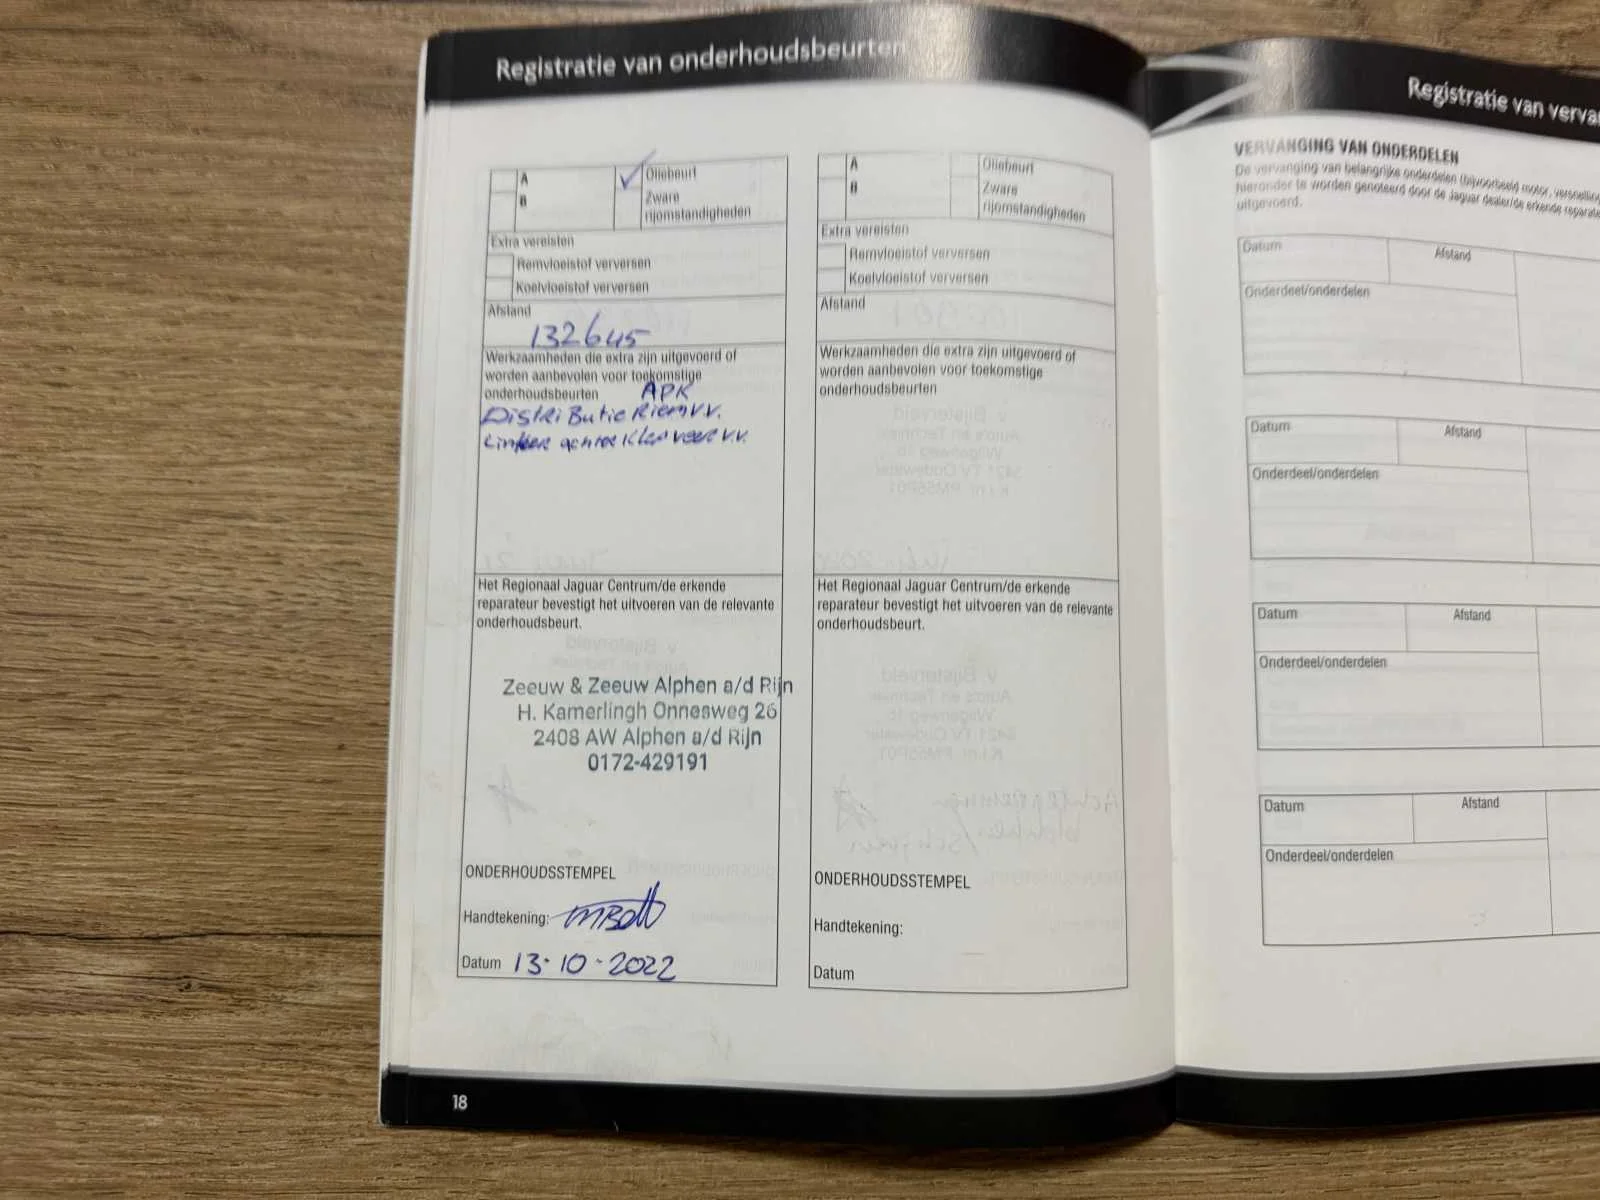 Registratie van onderhoudsbeurten
A
Oliebeurt
B
Zware
rijomstandigheden
Extra vereisten
Remvloeistof verversen
Koelvloeistof verversen
Afstand
132645
Werkzaamheden die extra zijn uitgevoerd of
worden aanbevolen voor toekomstige
onderhoudsbeurten APK
Distributie Riem v.v.
v.v.
Het Regionaal Jaguar Centrum/de erkende
reparateur bevestigt het uitvoeren van de relevante
onderhoudsbeurt.
Zeeuw & Zeeuw Alphen a/d Rijn
H. Kamerlingh Onnesweg 26
2408 AW Alphen a/d Rijn
0172-429191
ONDERHOUDSSTEMPEL
Handtekening:
Datum 13-10-2022
18
A
Oliebeurt
B
Zware
rijomstandigheden
Extra vereisten
Remvloeistof verversen
Koelvloeistof verversen
Afstand
Werkzaamheden die extra zijn uitgevoerd of
worden aanbevolen voor toekomstige
onderhoudsbeurten
Het Regionaal Jaguar Centrum/de erkende
reparateur bevestigt het uitvoeren van de relevante
onderhoudsbeurt.
ONDERHOUDSSTEMPEL
Handtekening:
Datum
Registratie van verva
VERVANGING VAN ONDERDELEN
De vervanging van belangrijke onderdelen (bijvoorbeeld motor, versnelling
hieronder te worden genoteerd door de Jaguar dealer/de erkende reparate
uitgevoerd.
Datum Afstand
Onderdeel/onderdelen
Datum Afstand
Onderdeel/onderdelen
Datum Afstand
Onderdeel/onderdelen
Datum Afstand
Onderdeel/onderdelen